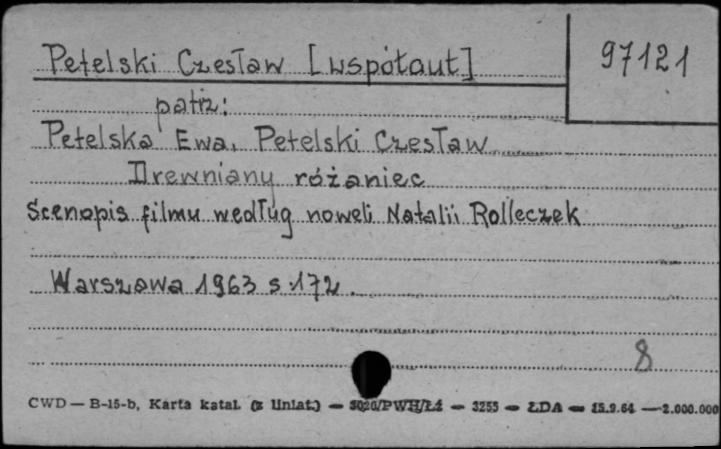 Petelski Czesław [współaut]
97121
patrz:
Petelska Ewa, Petelski Czesław
Drewniany różaniec
Scenopis filmu według noweli Natalii Rolleczek
Warszawa 1963 s. 172.
8
CWD — B-15-b, Karta katal. (z liniat.) — 5026/PWH/Łź — 3255 — ŁDA — 15.9.64 — 2.000.000